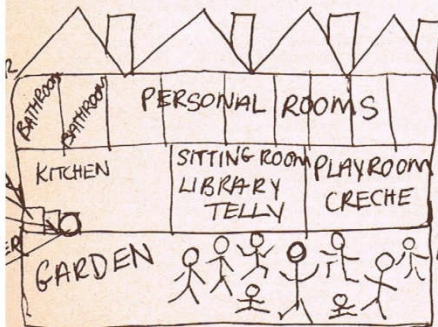 BATHROOM
BATHROOM
PERSONAL ROOMS
KITCHEN
SITTING ROOM
LIBRARY
TELLY
PLAYROOM
CRECHE
GARDEN